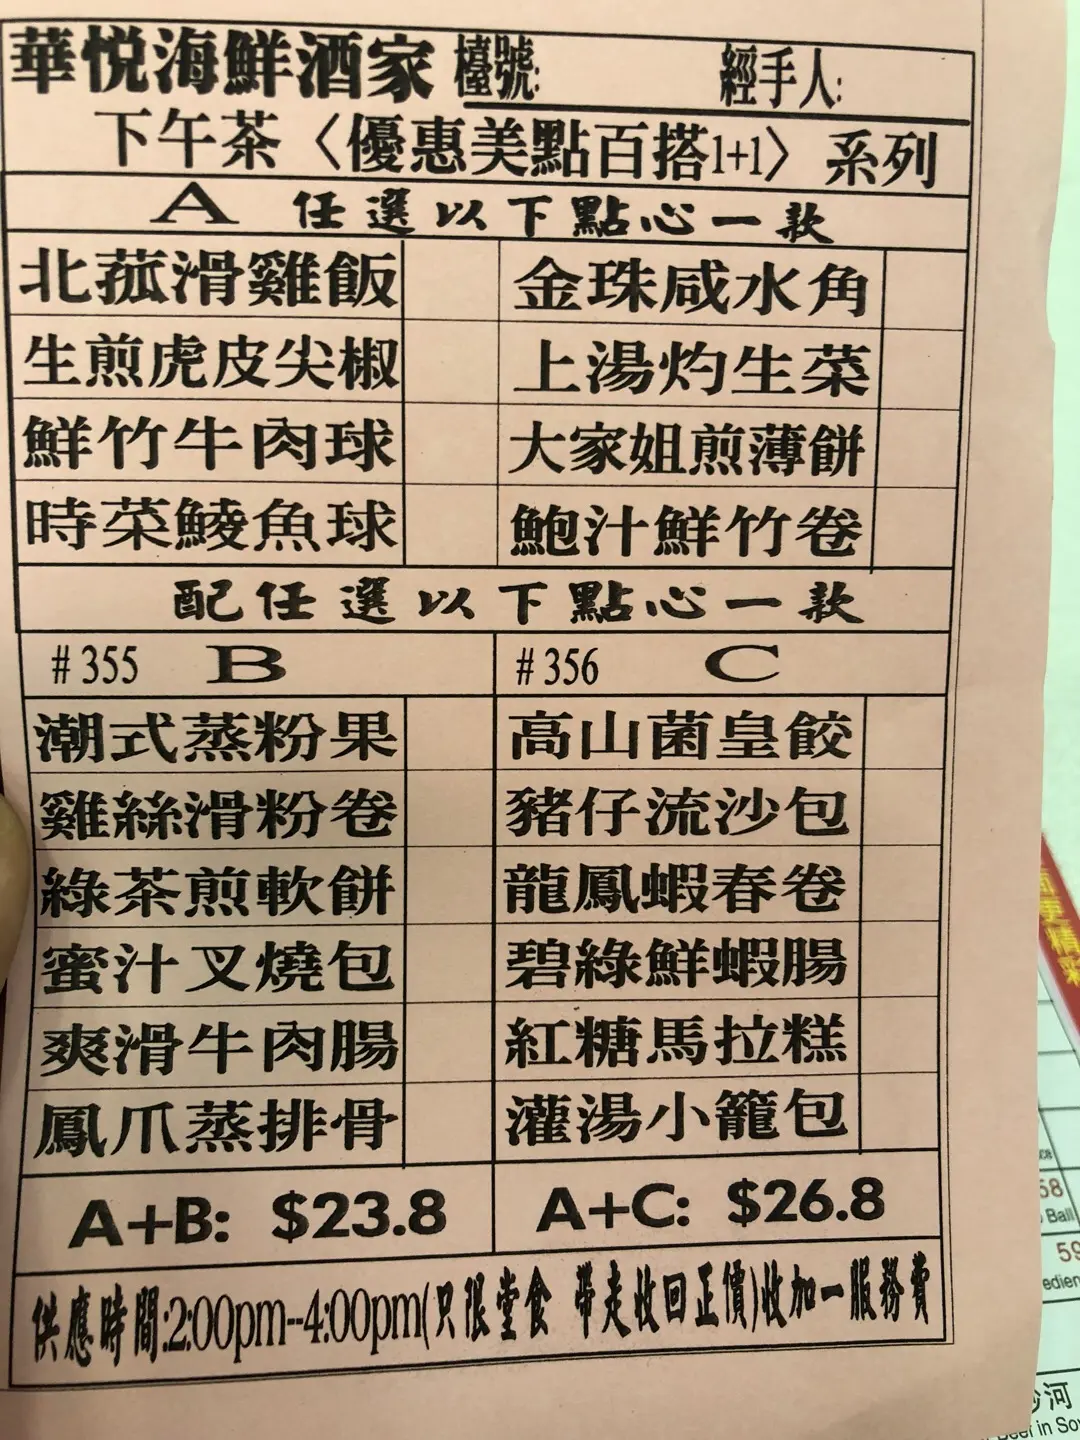 華悦海鮮酒家 檯號: 經手人:
下午茶〈優惠美點百搭1+1〉系列
A 任選以下點心一款
北菰滑雞飯 金珠咸水角
生煎虎皮尖椒 上湯灼生菜
鮮竹牛肉球 大家姐煎薄餅
時菜鯪魚球 鮑汁鮮竹卷
配任選以下點心一款
#355 B #356 C
潮式蒸粉果 高山菌皇餃
雞絲滑粉卷 豬仔流沙包
綠茶煎軟餅 龍鳳蝦春卷
蜜汁叉燒包 碧綠鮮蝦腸
爽滑牛肉腸 紅糖馬拉糕
鳳爪蒸排骨 灌湯小籠包
A+B: $23.8 A+C: $26.8
供應時間:2:00pm--4:00pm(只限堂食 帶走收回正價)收加一服務費
58
Ball
59
沙河
in